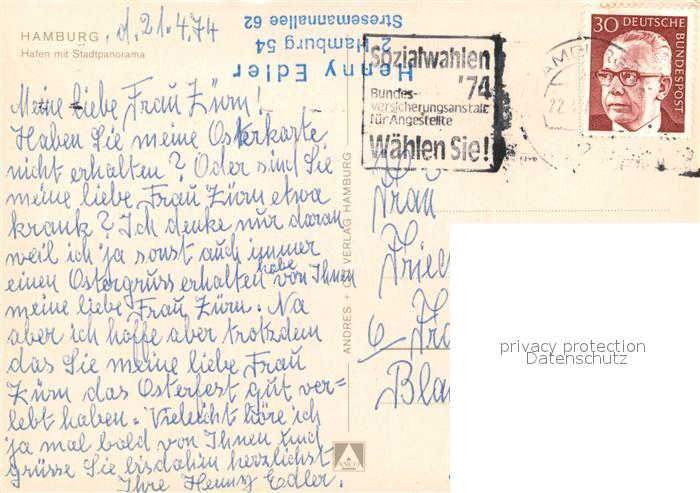 HAMBURG, d. 21.4.74
Hafen mit Stadtpanorama
Meine liebe Frau Zürn!
Haben Sie meine Osterkarte
nicht erhalten? Oder sind Sie
meine liebe Frau Zürn etwa
krank? Ich denke nur daran
weil ich ja sonst auch immer
einen Ostergruss erhalten habe von Ihnen
meine liebe Frau Zürn. Na
aber ich hoffe aber trotzdem
das Sie meine liebe Frau
Zürn das Osterfest gut ver=
lebt haben. Vielleicht höre ich
ja mal bald von Ihnen und
grüsse Sie bisdahin herzlichst
Ihre Henny Edler.
Henny Edler
2 Hamburg 54
Stresemannallee 62
Sozialwahlen
'74
Bundes-
versicherungsanstalt
für Angestellte
Wählen Sie!
30 DEUTSCHE
BUNDESPOST
22
ANDRES + CO VERLAG HAMBURG
ANCO
Frau
Fried
6
Bla
privacy protection
Datenschutz